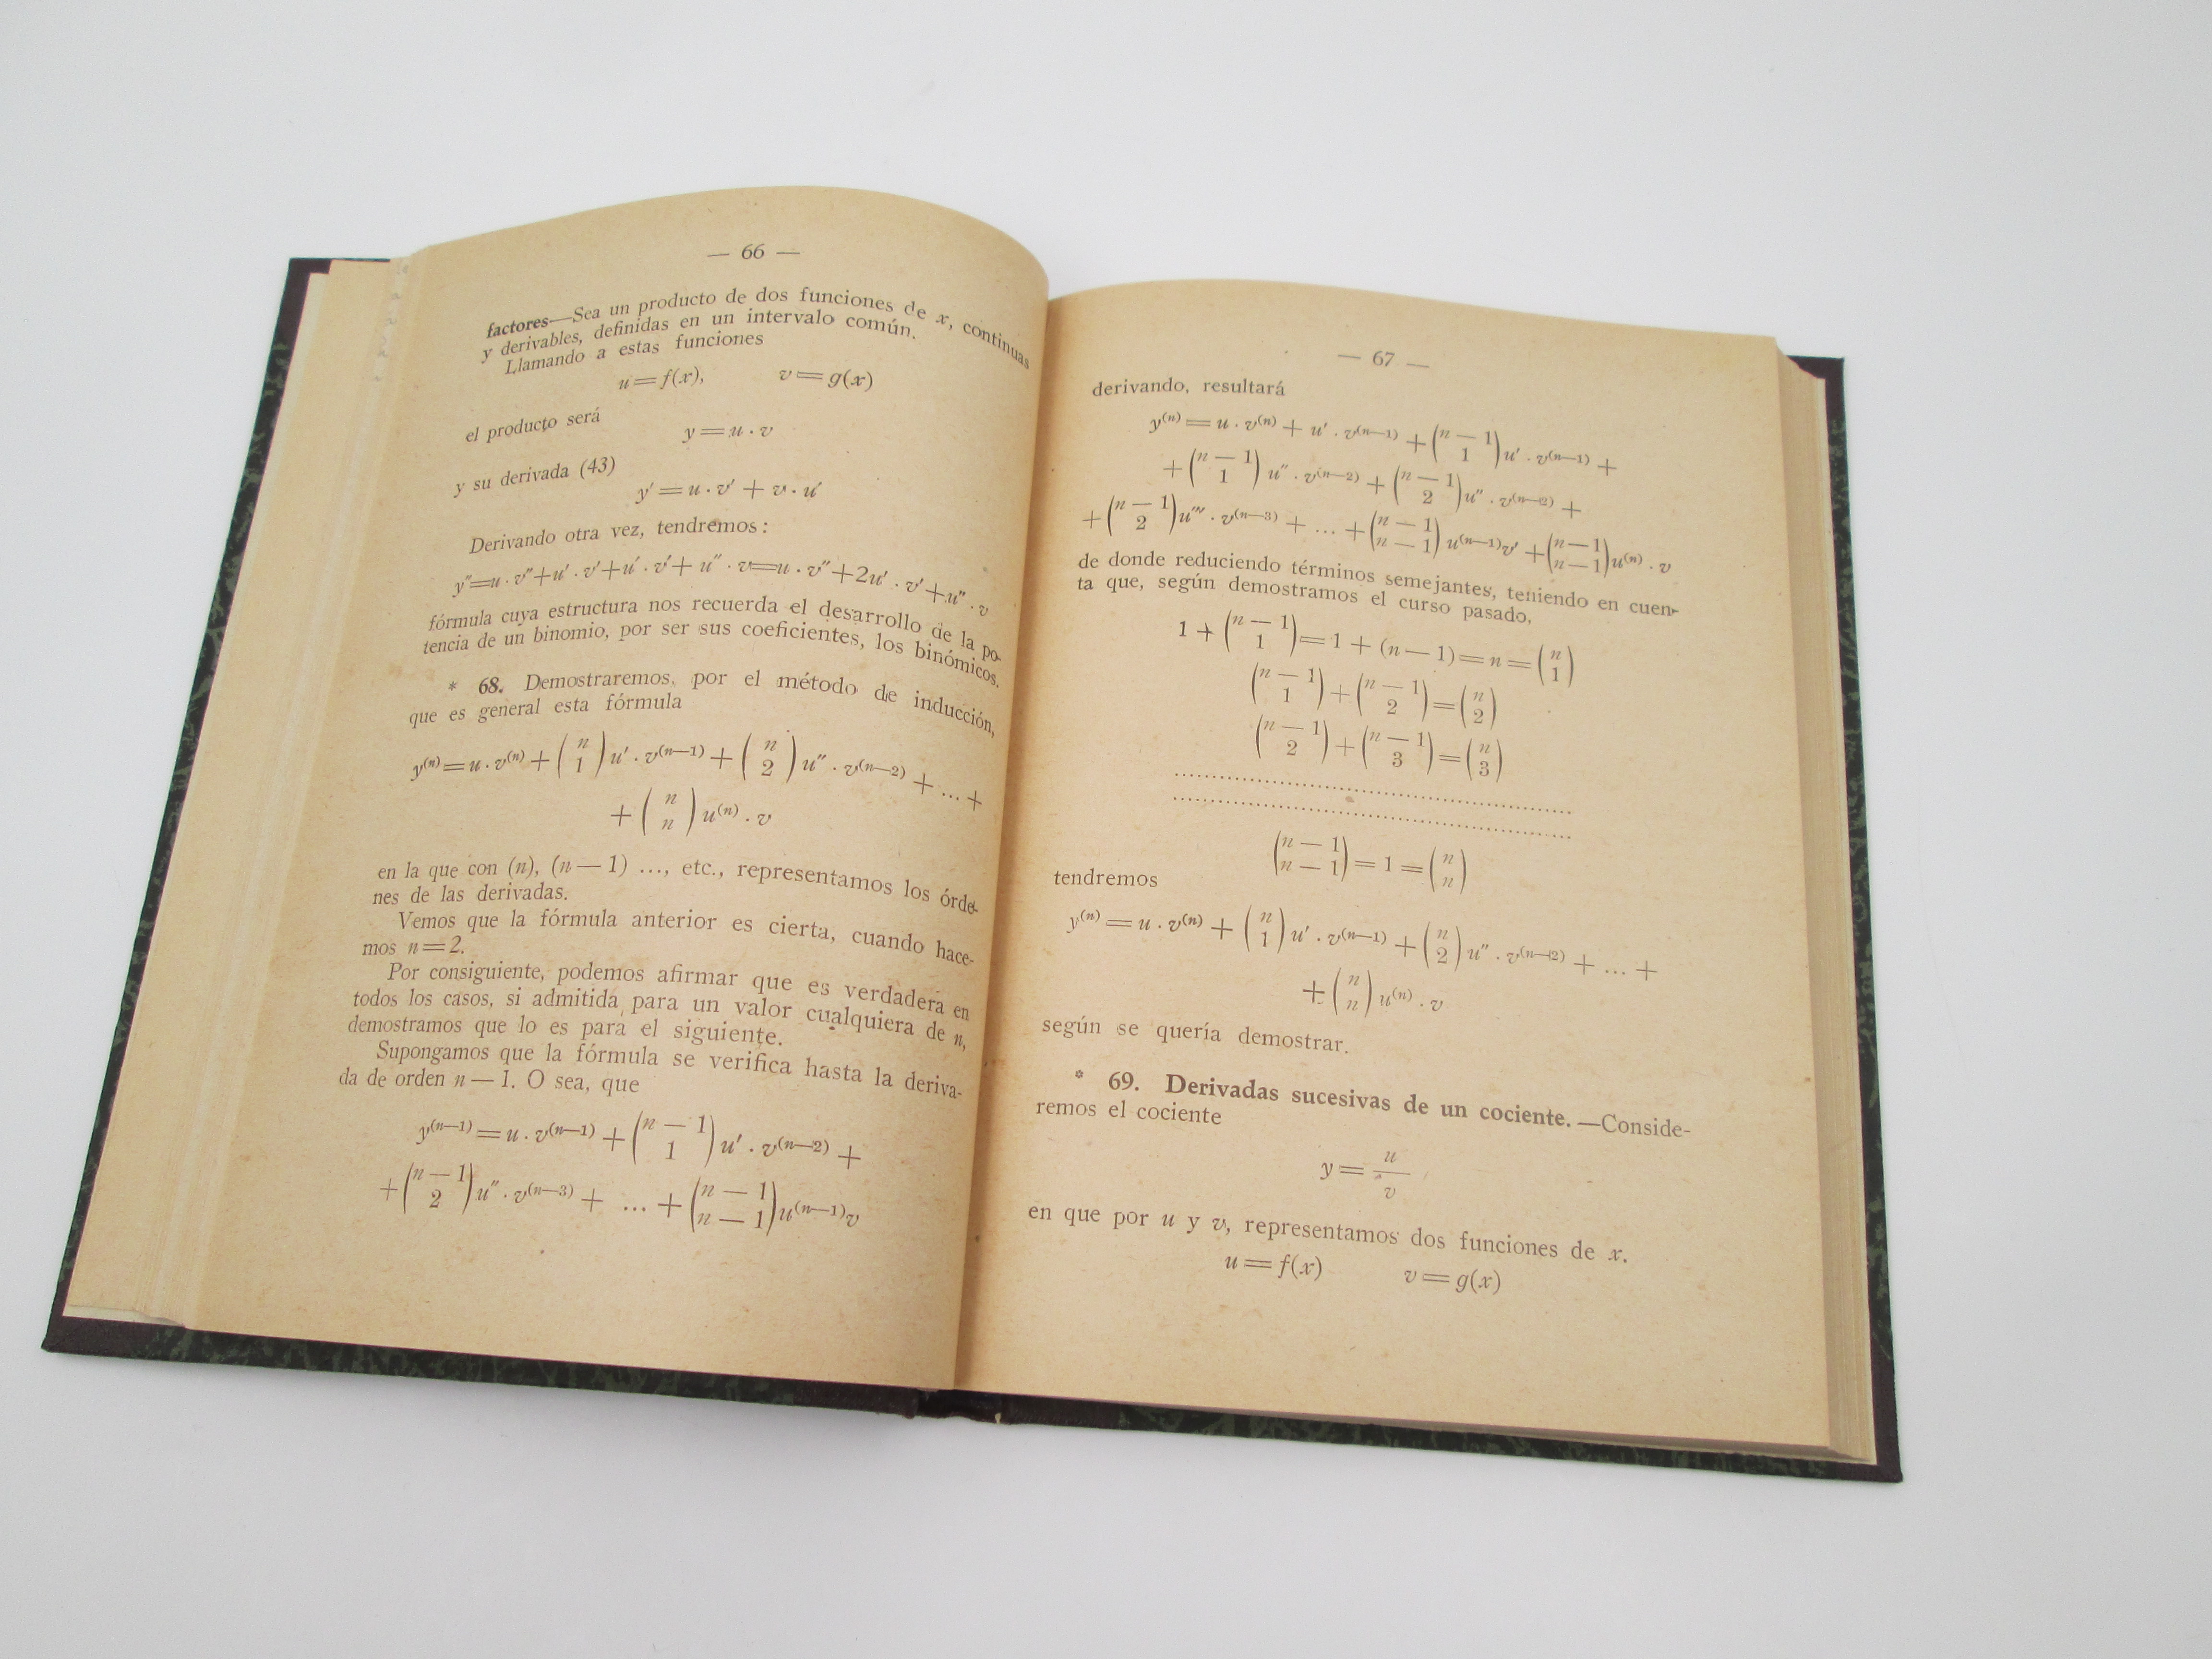 — 66 —
factores—Sea un producto de dos funciones de x, continuas
y derivables, definidas en un intervalo común.
Llamando a estas funciones
u = f(x), v = g(x)
el producto será
y = u · v
y su derivada (43)
y′ = u · v′ + v · u′
Derivando otra vez, tendremos:
y″=u · v″+u′ · v′+u′ · v′+ u″ · v=u · v″+2u′ · v′+u″ · v
fórmula cuya estructura nos recuerda el desarrollo de la po-
tencia de un binomio, por ser sus coeficientes, los binómicos.
* 68. Demostraremos, por el método de inducción,
que es general esta fórmula
y⁽ⁿ⁾=u · v⁽ⁿ⁾ + (n 1) u′ · v⁽ⁿ⁻¹⁾ + (n 2) u″ · v⁽ⁿ⁻²⁾ + ... +
+ (n n) u⁽ⁿ⁾ · v
en la que con (n), (n — 1) ..., etc., representamos los órde-
nes de las derivadas.
Vemos que la fórmula anterior es cierta, cuando hace-
mos n = 2.
Por consiguiente, podemos afirmar que es verdadera en
todos los casos, si admitida para un valor cualquiera de n,
demostramos que lo es para el siguiente.
Supongamos que la fórmula se verifica hasta la deriva-
da de orden n — 1. O sea, que
y⁽ⁿ⁻¹⁾ = u · v⁽ⁿ⁻¹⁾ + (n — 1 1) u′ · v⁽ⁿ⁻²⁾ +
+ (n — 1 2) u″ · v⁽ⁿ⁻³⁾ + ... + (n — 1 n — 1) u⁽ⁿ⁻¹⁾v
— 67 —
derivando, resultará
y⁽ⁿ⁾ = u · v⁽ⁿ⁾ + u′ · v⁽ⁿ⁻¹⁾ + (n — 1 1) u′ · v⁽ⁿ⁻¹⁾ +
+ (n — 1 1) u″ · v⁽ⁿ⁻²⁾ + (n — 1 2) u″ · v⁽ⁿ⁻²⁾ +
+ (n — 1 2) u‴ · v⁽ⁿ⁻³⁾ + ... + (n — 1 n — 1) u⁽ⁿ⁻¹⁾v′ + (n — 1 n — 1) u⁽ⁿ⁾ · v
de donde reduciendo términos semejantes, teniendo en cuen-
ta que, según demostramos el curso pasado,
1 + (n — 1 1) = 1 + (n — 1) = n = (n 1)
(n — 1 1) + (n — 1 2) = (n 2)
(n — 1 2) + (n — 1 3) = (n 3)
................................................
................................................
(n — 1 n — 1) = 1 = (n n)
tendremos
y⁽ⁿ⁾ = u · v⁽ⁿ⁾ + (n 1) u′ · v⁽ⁿ⁻¹⁾ + (n 2) u″ · v⁽ⁿ⁻²⁾ + ... +
+ (n n) u⁽ⁿ⁾ · v
según se quería demostrar.
* 69. Derivadas sucesivas de un cociente. —Conside-
remos el cociente
y = u/v
en que por u y v, representamos dos funciones de x.
u = f(x) v = g(x)